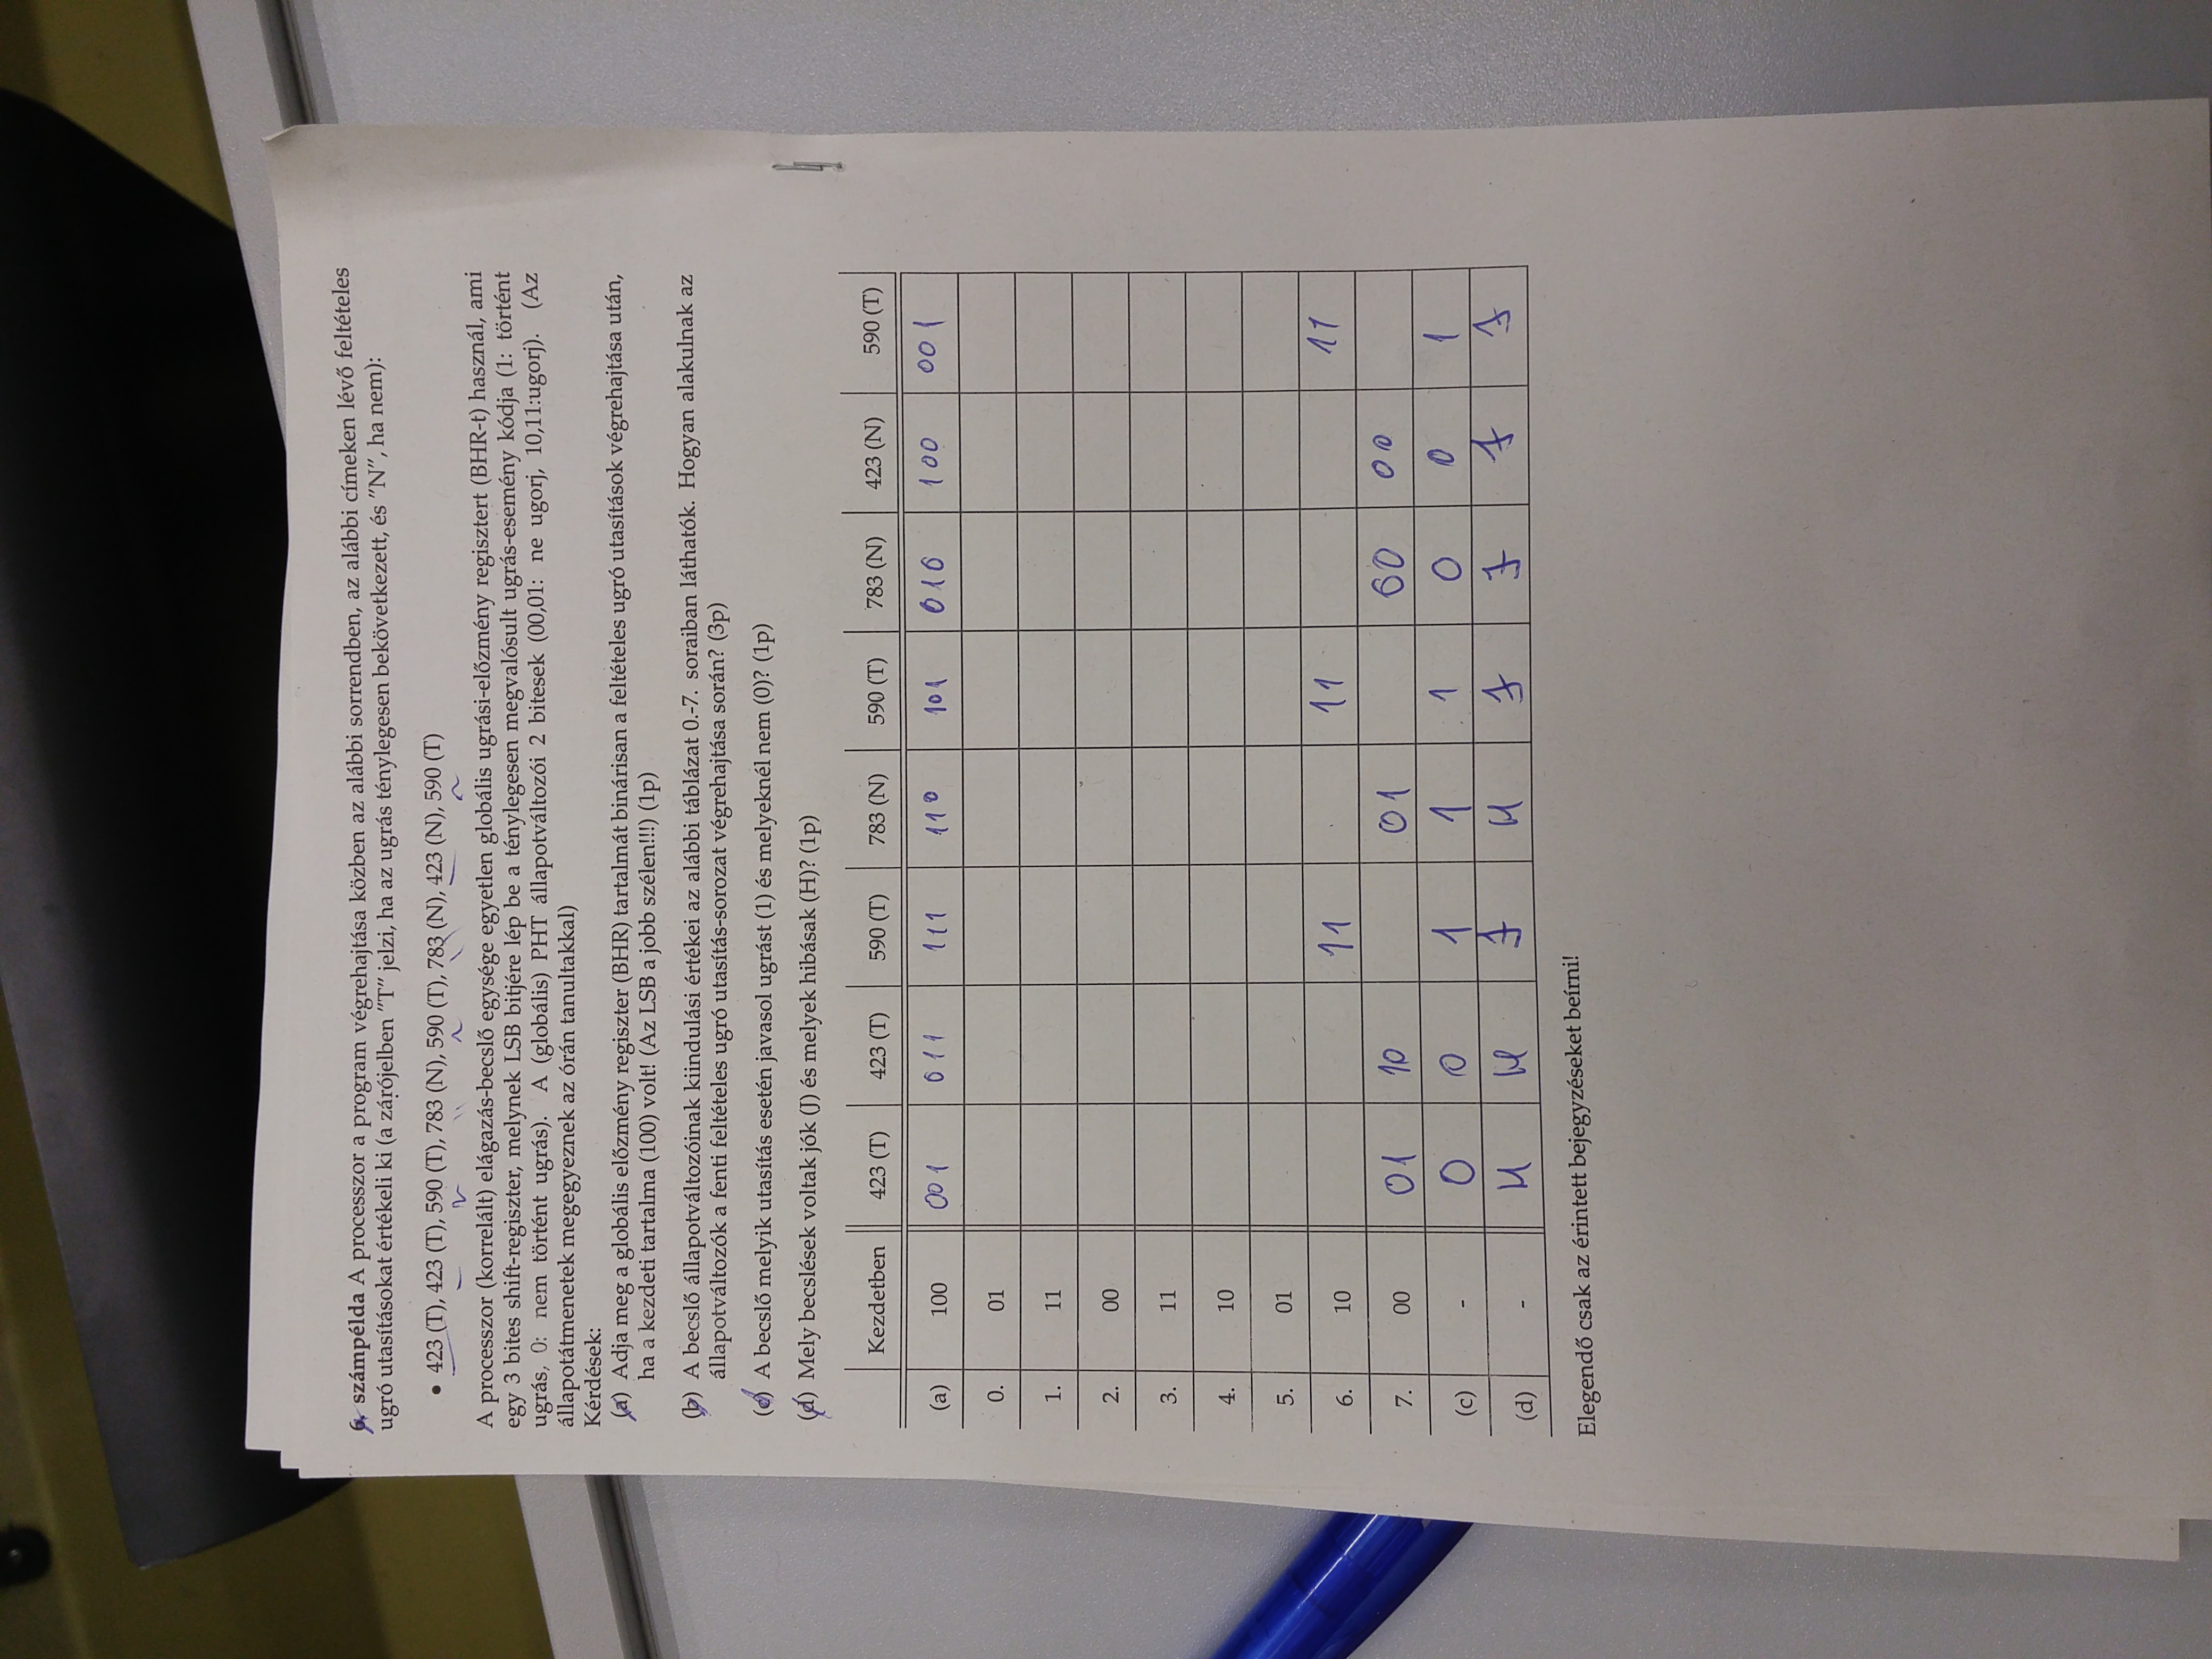 6. számpélda A processzor a program végrehajtása közben az alábbi sorrendben, az alábbi címeken lévő feltételes
ugró utasításokat értékeli ki (a zárójelben ”T” jelzi, ha az ugrás ténylegesen bekövetkezett, és ”N”, ha nem):
• 423 (T), 423 (T), 590 (T), 783 (N), 590 (T), 783 (N), 423 (N), 590 (T)
A processzor (korrelált) elágazás-becslő egysége egyetlen globális ugrási-előzmény regisztert (BHR-t) használ, ami
egy 3 bites shift-regiszter, melynek LSB bitjére lép be a ténylegesen megvalósult ugrás-esemény kódja (1: történt
ugrás, 0: nem történt ugrás). A (globális) PHT állapotváltozói 2 bitesek (00,01: ne ugorj, 10,11:ugorj). (Az
állapotátmenetek megegyeznek az órán tanultakkal)
Kérdések:
(a) Adja meg a globális előzmény regiszter (BHR) tartalmát binárisan a feltételes ugró utasítások végrehajtása után,
ha a kezdeti tartalma (100) volt! (Az LSB a jobb szélen!!!) (1p)
(b) A becslő állapotváltozóinak kiindulási értékei az alábbi táblázat 0.-7. soraiban láthatók. Hogyan alakulnak az
állapotváltozók a fenti feltételes ugró utasítás-sorozat végrehajtása során? (3p)
(c) A becslő melyik utasítás esetén javasol ugrást (1) és melyeknél nem (0)? (1p)
(d) Mely becslések voltak jók (J) és melyek hibásak (H)? (1p)
Kezdetben 423 (T) 423 (T) 590 (T) 783 (N) 590 (T) 783 (N) 423 (N) 590 (T)
(a) 100 001 011 111 110 101 010 100 001
0. 01
1. 11
2. 00
3. 11
4. 10
5. 01
6. 10 11 11 11
7. 00 01 10 01 00 00
(c) - 0 0 1 1 1 0 0 1
(d) - H H J H J J J J
Elegendő csak az érintett bejegyzéseket beírni!